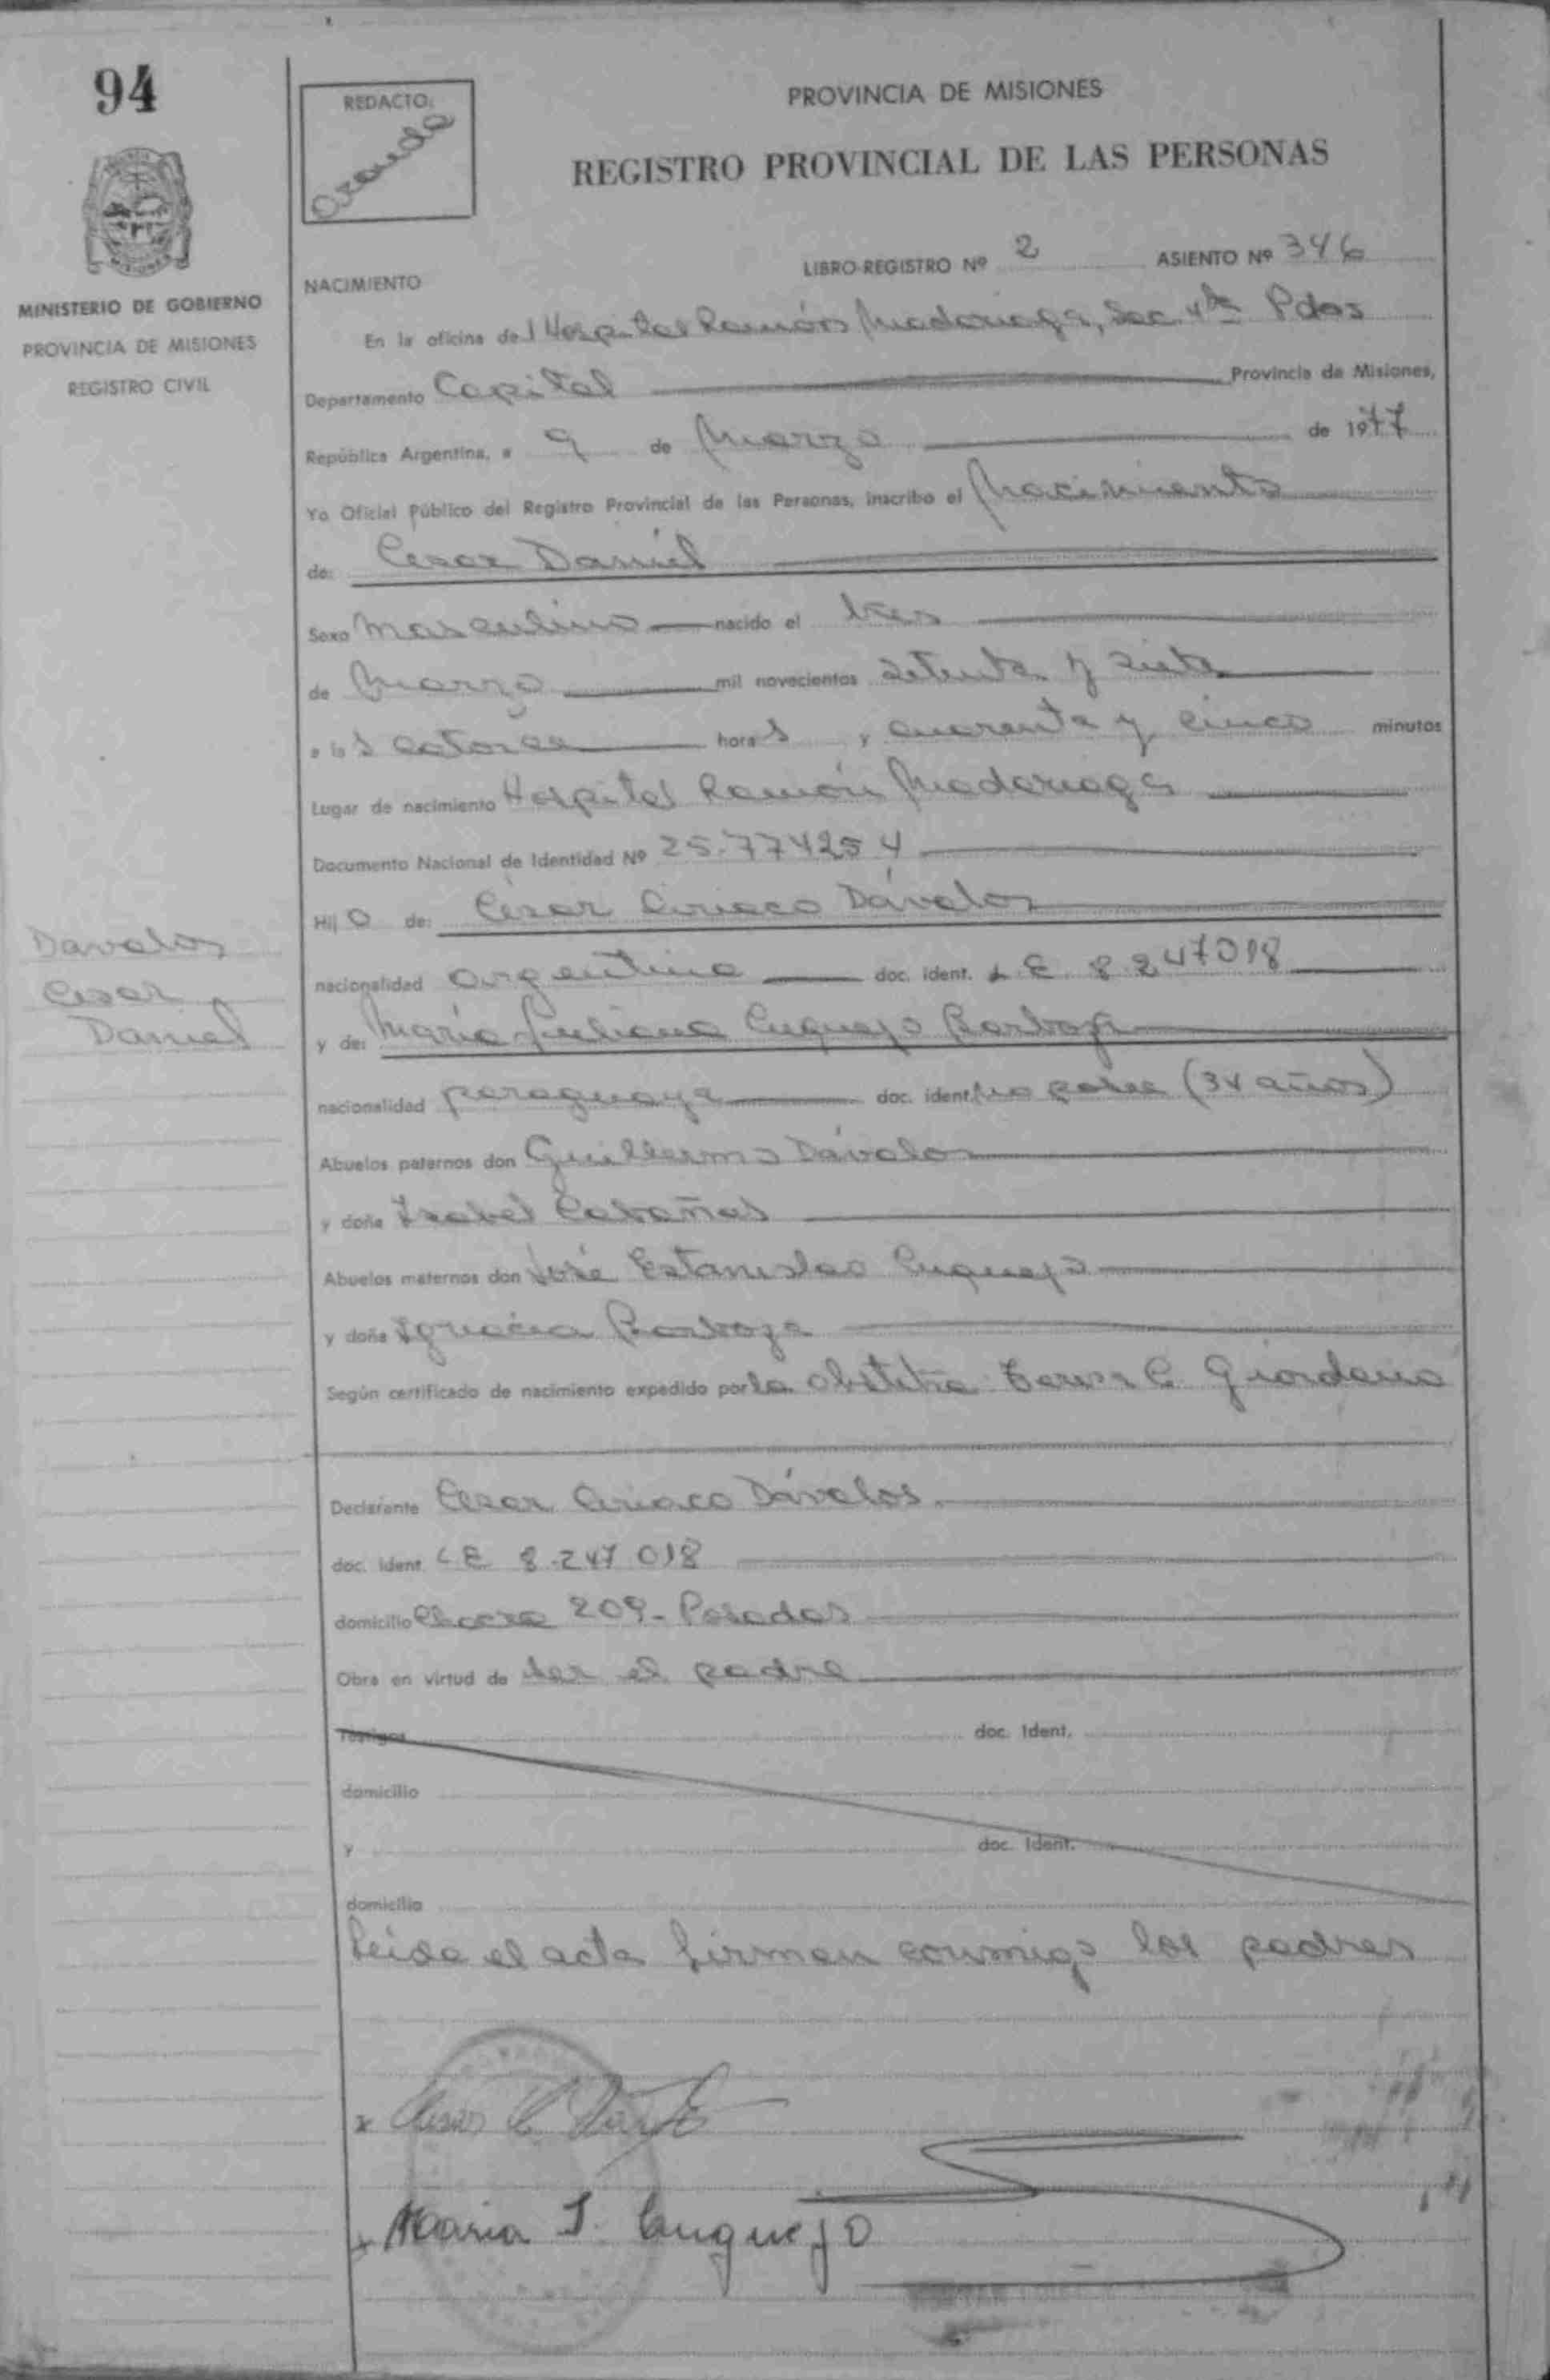 94
REDACTO:
PROVINCIA DE MISIONES
REGISTRO PROVINCIAL DE LAS PERSONAS
LIBRO-REGISTRO Nº 2 ASIENTO Nº 346
NACIMIENTO
MINISTERIO DE GOBIERNO
PROVINCIA DE MISIONES
REGISTRO CIVIL
En la oficina del Hospital Ramón Madariaga, Sec. 4ta Pdas
Departamento Capital Provincia de Misiones,
República Argentina, a 9 de Marzo de 1977
Yo Oficial Público del Registro Provincial de las Personas, inscribo el Nacimiento
de: César Daniel
Sexo Masculino nacido el tres
de Marzo mil novecientos setenta y siete
a las catorce horas y cuarenta y cinco minutos
Lugar de nacimiento Hospital Ramón Madariaga
Documento Nacional de Identidad Nº 25.774254
Hijo de: César Ciriaco Dávalos
Davalos
Cesar
Daniel
nacionalidad argentina doc. ident. L E 8.247018
y de: María Juliana Cuquejo Barboza
nacionalidad paraguaya doc. ident. No posee (34 años)
Abuelos paternos don Guillermo Dávalos
y doña Isabel Cabañas
Abuelos maternos don José Estanislao Cuquejo
y doña Ignacia Barboza
Según certificado de nacimiento expedido por la obstetra Teresa C. Giordano
Declarante César Ciriaco Dávalos.
doc. Ident. L E 8.247 018
domicilio Chacra 209 - Posadas
Obra en virtud de ser el padre
Testigos doc. Ident.
domicilio
y doc. Ident.
domicilio
Leída el acta firman conmigo los padres
x Cesar C.
x Maria J. Cuquejo